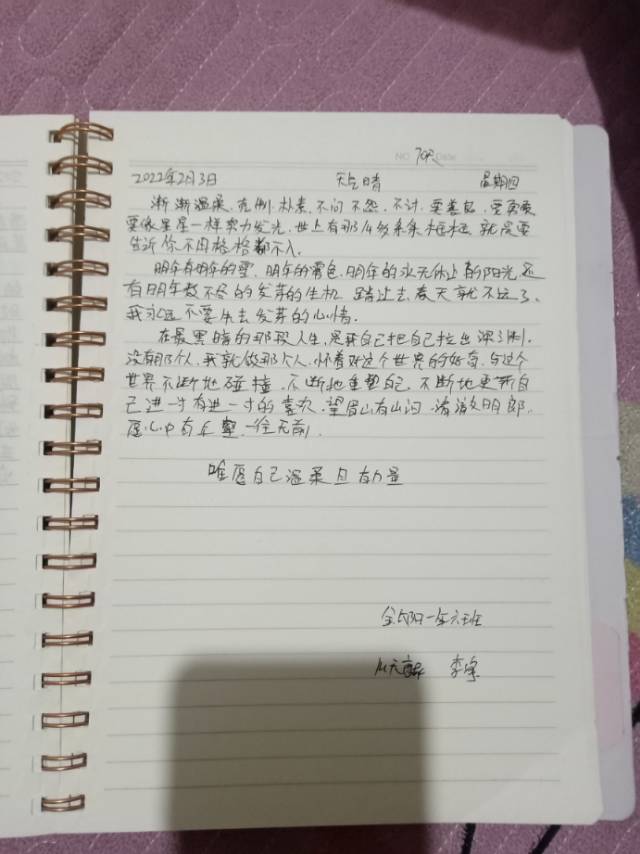 NO 70天 Date
2022年2月3日 天气晴 星期四
渐渐温柔、克制、朴素、不问不怨、不讨、要善良、要勇敢
要像星星一样努力发光，世上有那么多条条框框，就是要
告诉你不用格格都入。
明年有明年的雪，明年的霄色，明年的永无休止的阳光，还
有明年数不尽的发芽的生机，踏过去，春天就不远了，
我永远不要失去发芽的心情。
在最黑暗的那段人生，是我自己把自己拉出深渊，
没有那个人，我就做那个人，怀着对这个世界的好奇，与这个
世界不断地碰撞，不断地重塑自己，不断地更新自
己进一寸有进一寸的喜欢，望眉山有山河，清澈明朗，
愿心中有丘壑，一往无前，
唯愿自己温柔且有力量